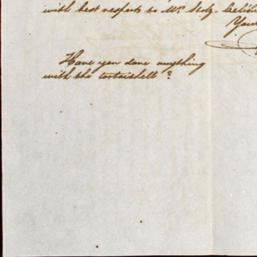 with best respects to Mrs. Stolz
Your
Have you done anything
with the tortoishell ?